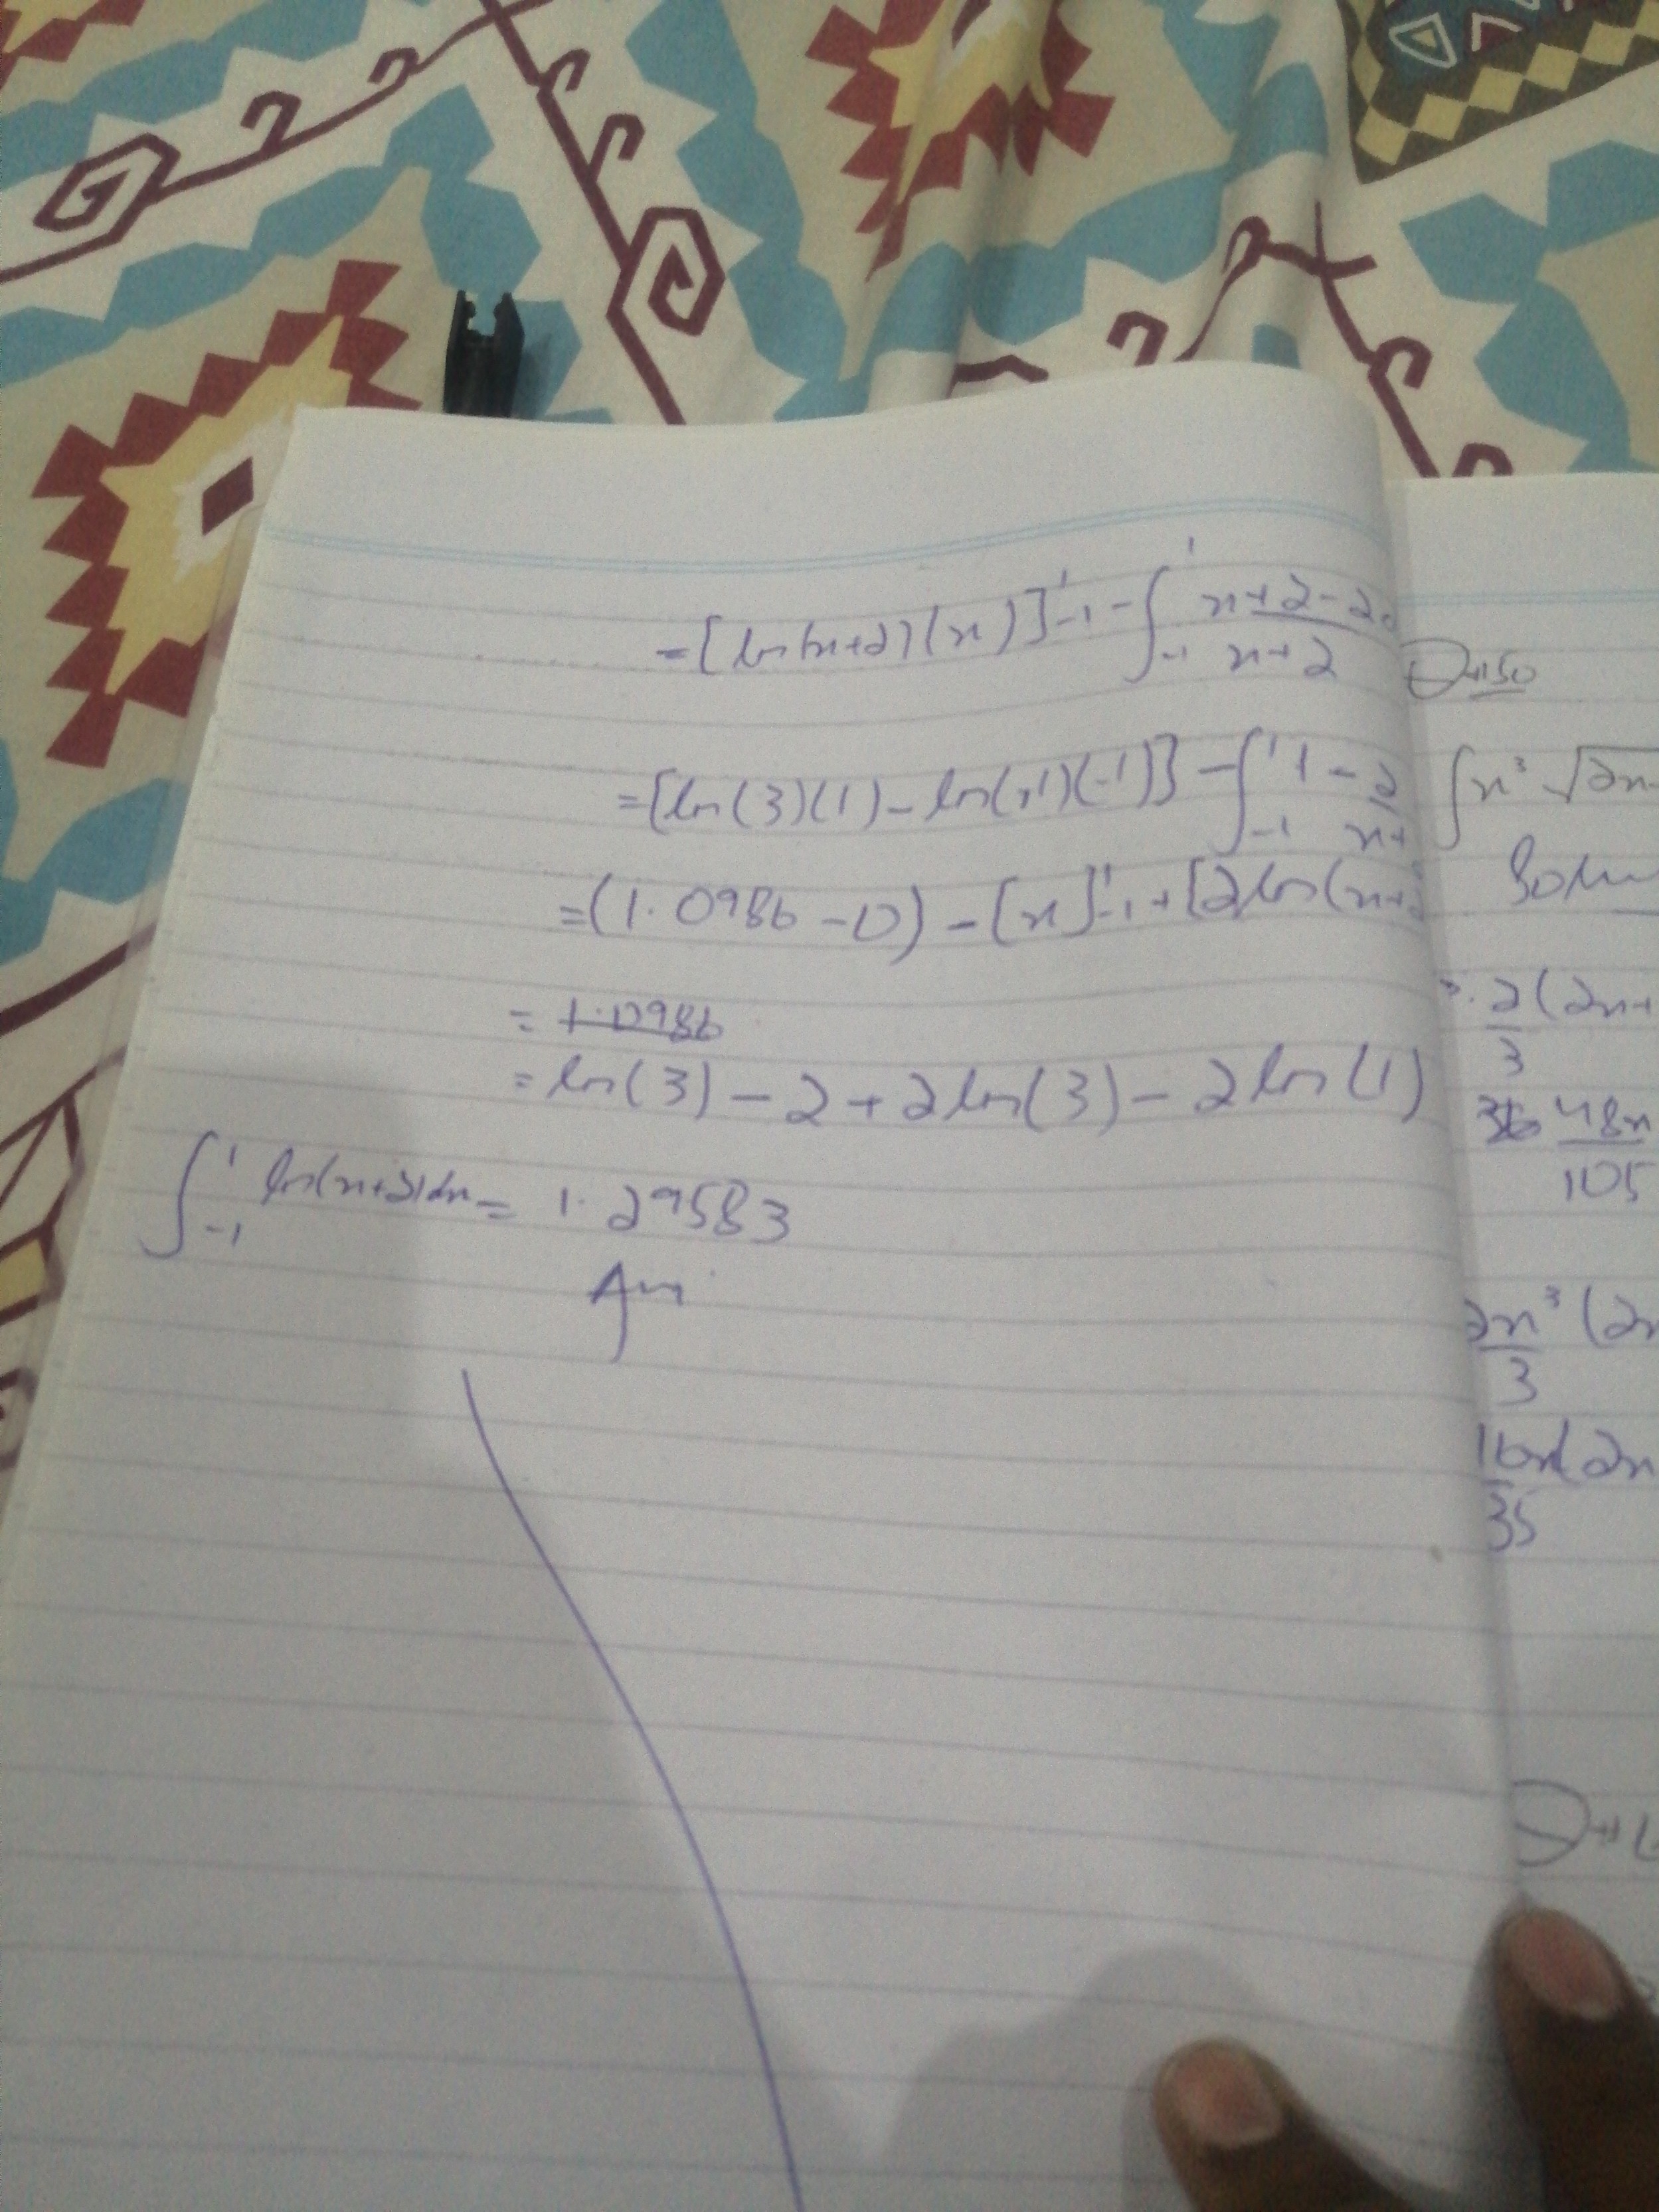 = [ln(x+2)(x)]¹₋₁ - ∫¹₋₁ x+2-2 / x+2
= [ln(3)(1) - ln(1)(-1)] - ∫¹₋₁ 1 - 2 / x+
= (1.0986 - 0) - [x]¹₋₁ + [2ln(x+
= 1.0986
= ln(3) - 2 + 2ln(3) - 2ln(1)
∫¹₋₁ ln(x+2)dx = 1.29583
Ans
Q#50
∫x³ √2x
Solu
2(2x+
3
48x
105
2x³(2x
3
16x(2x
35